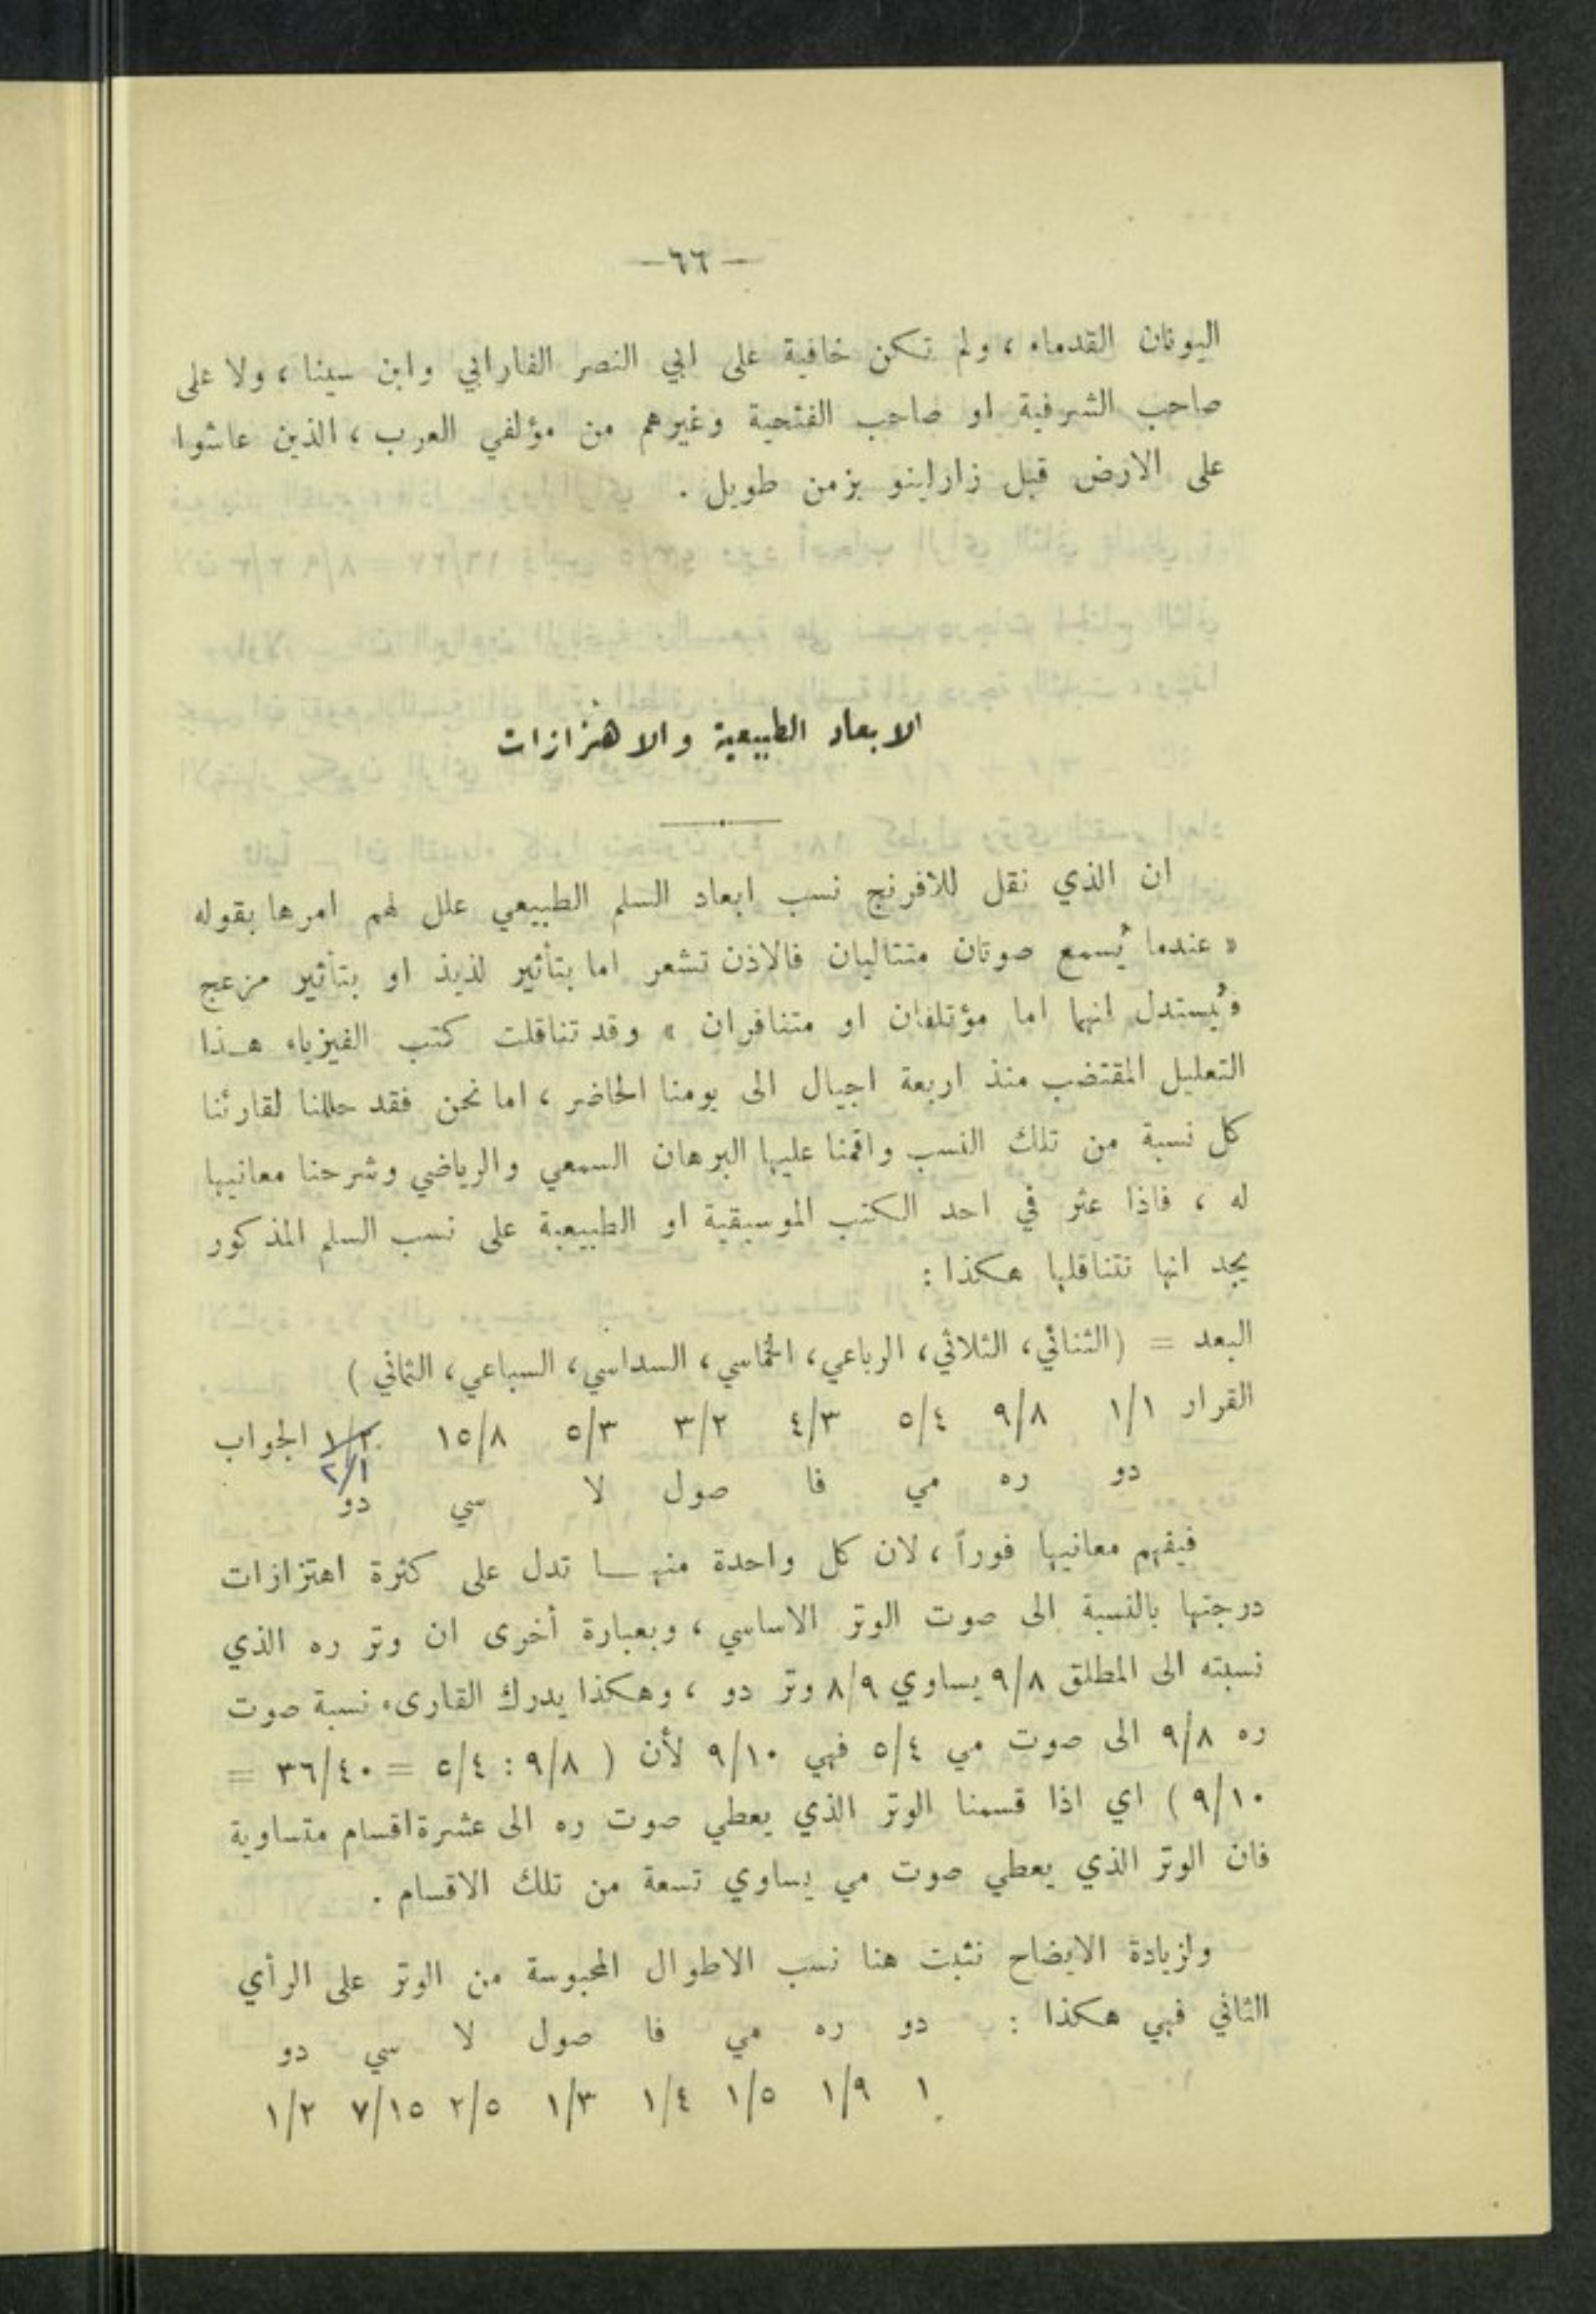 — ٦٦ —
اليونان القدماء ، ولم تكن خافية على ابي النصر الفارابي وابن سينا ، ولا على
صاحب الشرفية او صاحب الفتحية وغيرهم من مؤلفي العرب ، الذين عاشوا
على الارض قبل زارلينو بزمن طويل .
الابعاد الطبيعية والاهتزازات
ان الذي نقل للافرنج نسب ابعاد السلم الطبيعي علل لهم امرها بقوله
« عندما يُسمع صوتان متتاليان فالاذن تشعر اما بتأثير لذيذ او بتأثير مزعج
فيُستدل انهما اما مؤتلفان او متنافران » وقد تناقلت كتب الفيزياء هـذا
التعليل المقتضب منذ اربعة اجيال الى يومنا الحاضر ، اما نحن فقد حللنا لقارئنا
كل نسبة من تلك النسب واقمنا عليها البرهان السمعي والرياضي وشرحنا معانيها
له ، فاذا عثر في احد الكتب الموسيقية او الطبيعية على نسب السلم المذكور
يجد انها تتناقلها هكذا :
البعد = (الثنائي، الثلاثي، الرباعي، الخماسي، السداسي، السباعي، الثماني )
القرار ١/١ ٩/٨ ٥/٤ ٤/٣ ٣/٢ ٥/٣ ١٥/٨ ١/٢ الجواب
٢/١
دو ره مي فا صول لا سي دو
فيفهم معانيها فوراً ، لان كل واحدة منهـا تدل على كثرة اهتزازات
درجتها بالنسبة الى صوت الوتر الاساسي ، وبعبارة أخرى ان وتر ره الذي
نسبته الى المطلق ٩/٨ يساوي ٨/٩ وتر دو ، وهكذا يدرك القارىء نسبة صوت
ره ٩/٨ الى صوت مي ٥/٤ فهي ٩/١٠ لأن ( ٩/٨ : ٥/٤ = ٣٦/٤٠ =
٩/١٠ ) اي اذا قسمنا الوتر الذي يعطي صوت ره الى عشرة اقسام متساوية
فان الوتر الذي يعطي صوت مي يساوي تسعة من تلك الاقسام .
ولزيادة الايضاح نثبت هنا نسب الاطوال المحبوسة من الوتر على الرأي
الثاني فهي هكذا : دو ره مي فا صول لا سي دو
١ ١/٩ ١/٥ ١/٤ ١/٣ ٢/٥ ٧/١٥ ١/٢